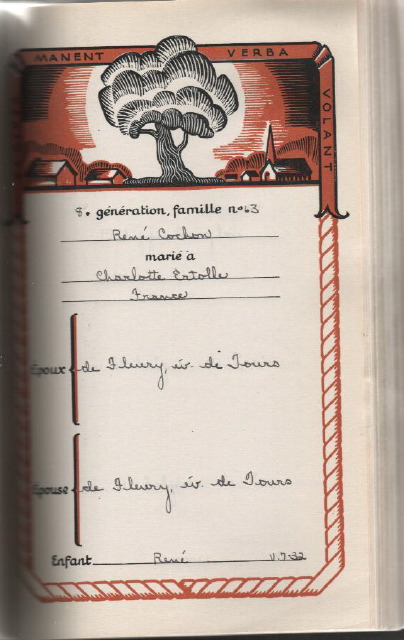 MANENT VERBA VOLANT
8e génération, famille no 63
René Cochon
marié à
Charlotte Estolle
France
Époux de Fleury, év. de Tours
Épouse de Fleury, év. de Tours
Enfant René V.7-32